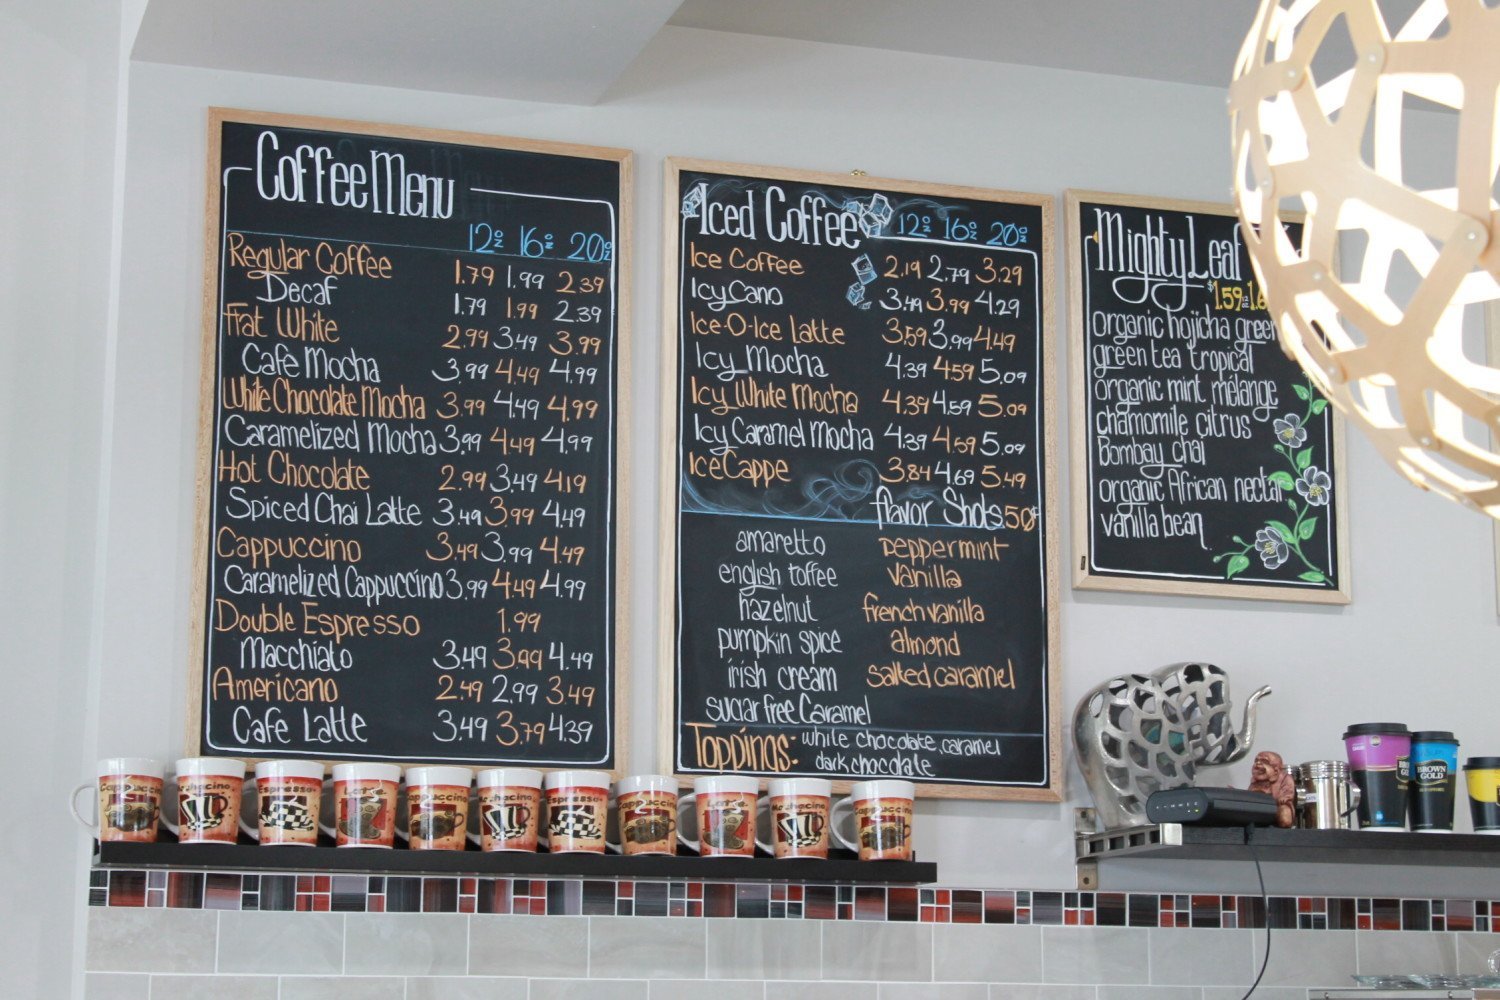 Coffee Menu
12oz 16oz 20oz
Regular Coffee 1.79 1.99 2.39
Decaf 1.79 1.99 2.39
Flat White 2.99 3.49 3.99
Cafè Mocha 3.99 4.49 4.99
White Chocolate Mocha 3.99 4.49 4.99
Caramelized Mocha 3.99 4.49 4.99
Hot Chocolate 2.99 3.49 4.19
Spiced Chai Latte 3.49 3.99 4.49
Cappuccino 3.49 3.99 4.49
Caramelized Cappuccino 3.99 4.49 4.99
Double Espresso 1.99
Macchiato 3.49 3.99 4.49
Americano 2.49 2.99 3.49
Cafe Latte 3.49 3.79 4.39
Iced Coffee 12oz 16oz 20oz
Ice Coffee 2.19 2.79 3.29
Icy Cano 3.49 3.99 4.29
Ice-O-Ice Latte 3.59 3.99 4.49
Icy Mocha 4.39 4.59 5.09
Icy White Mocha 4.39 4.59 5.09
Icy Caramel Mocha 4.39 4.59 5.09
Ice Cappe 3.84 4.69 5.49
flavor Shots 50¢
amaretto peppermint
english toffee vanilla
hazelnut french vanilla
pumpkin spice almond
irish cream salted caramel
sugar free Caramel
Toppings: white chocolate, caramel
dark chocolate
Mighty Leaf
$1.59
organic hojicha green
green tea tropical
organic mint mélange
chamomile citrus
Bombay chai
organic African nectar
vanilla bean
Cappuccino
Mochacino
Espresso
Coffee
Cappuccino
Mochacino
Espresso
Cappuccino
Coffee
Mochacino
Cappuccino
BROWN GOLD